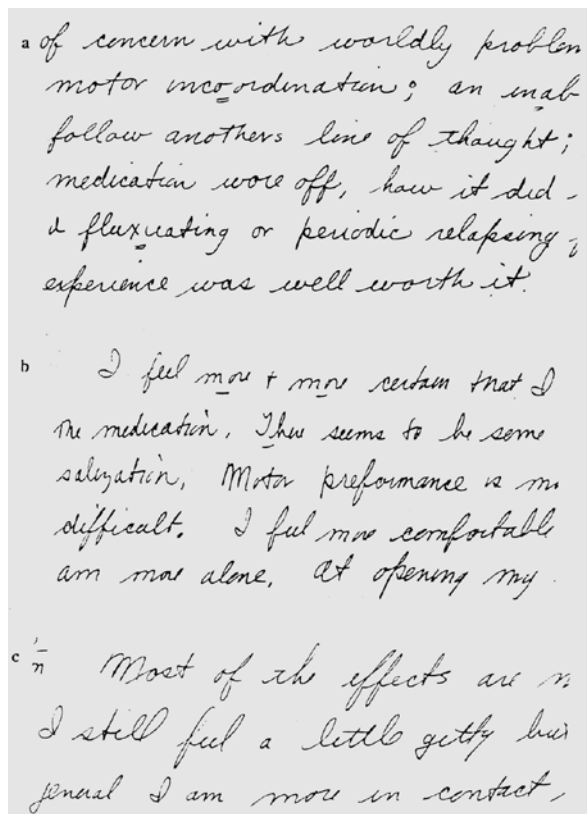 a of concern with worldly problem
motor incoordination; an inab
follow anothers line of thought;
medication wore off, how it did
fluxuating or periodic relapsing
experience was well worth it.
b I feel more + more certain that I
the medication. There seems to be some
salization, Motor preformance is mo
difficult. I feel more comfortable
am more alone. At opening my
c Most of the effects are n
I still feel a little getty
general I am more in contact,